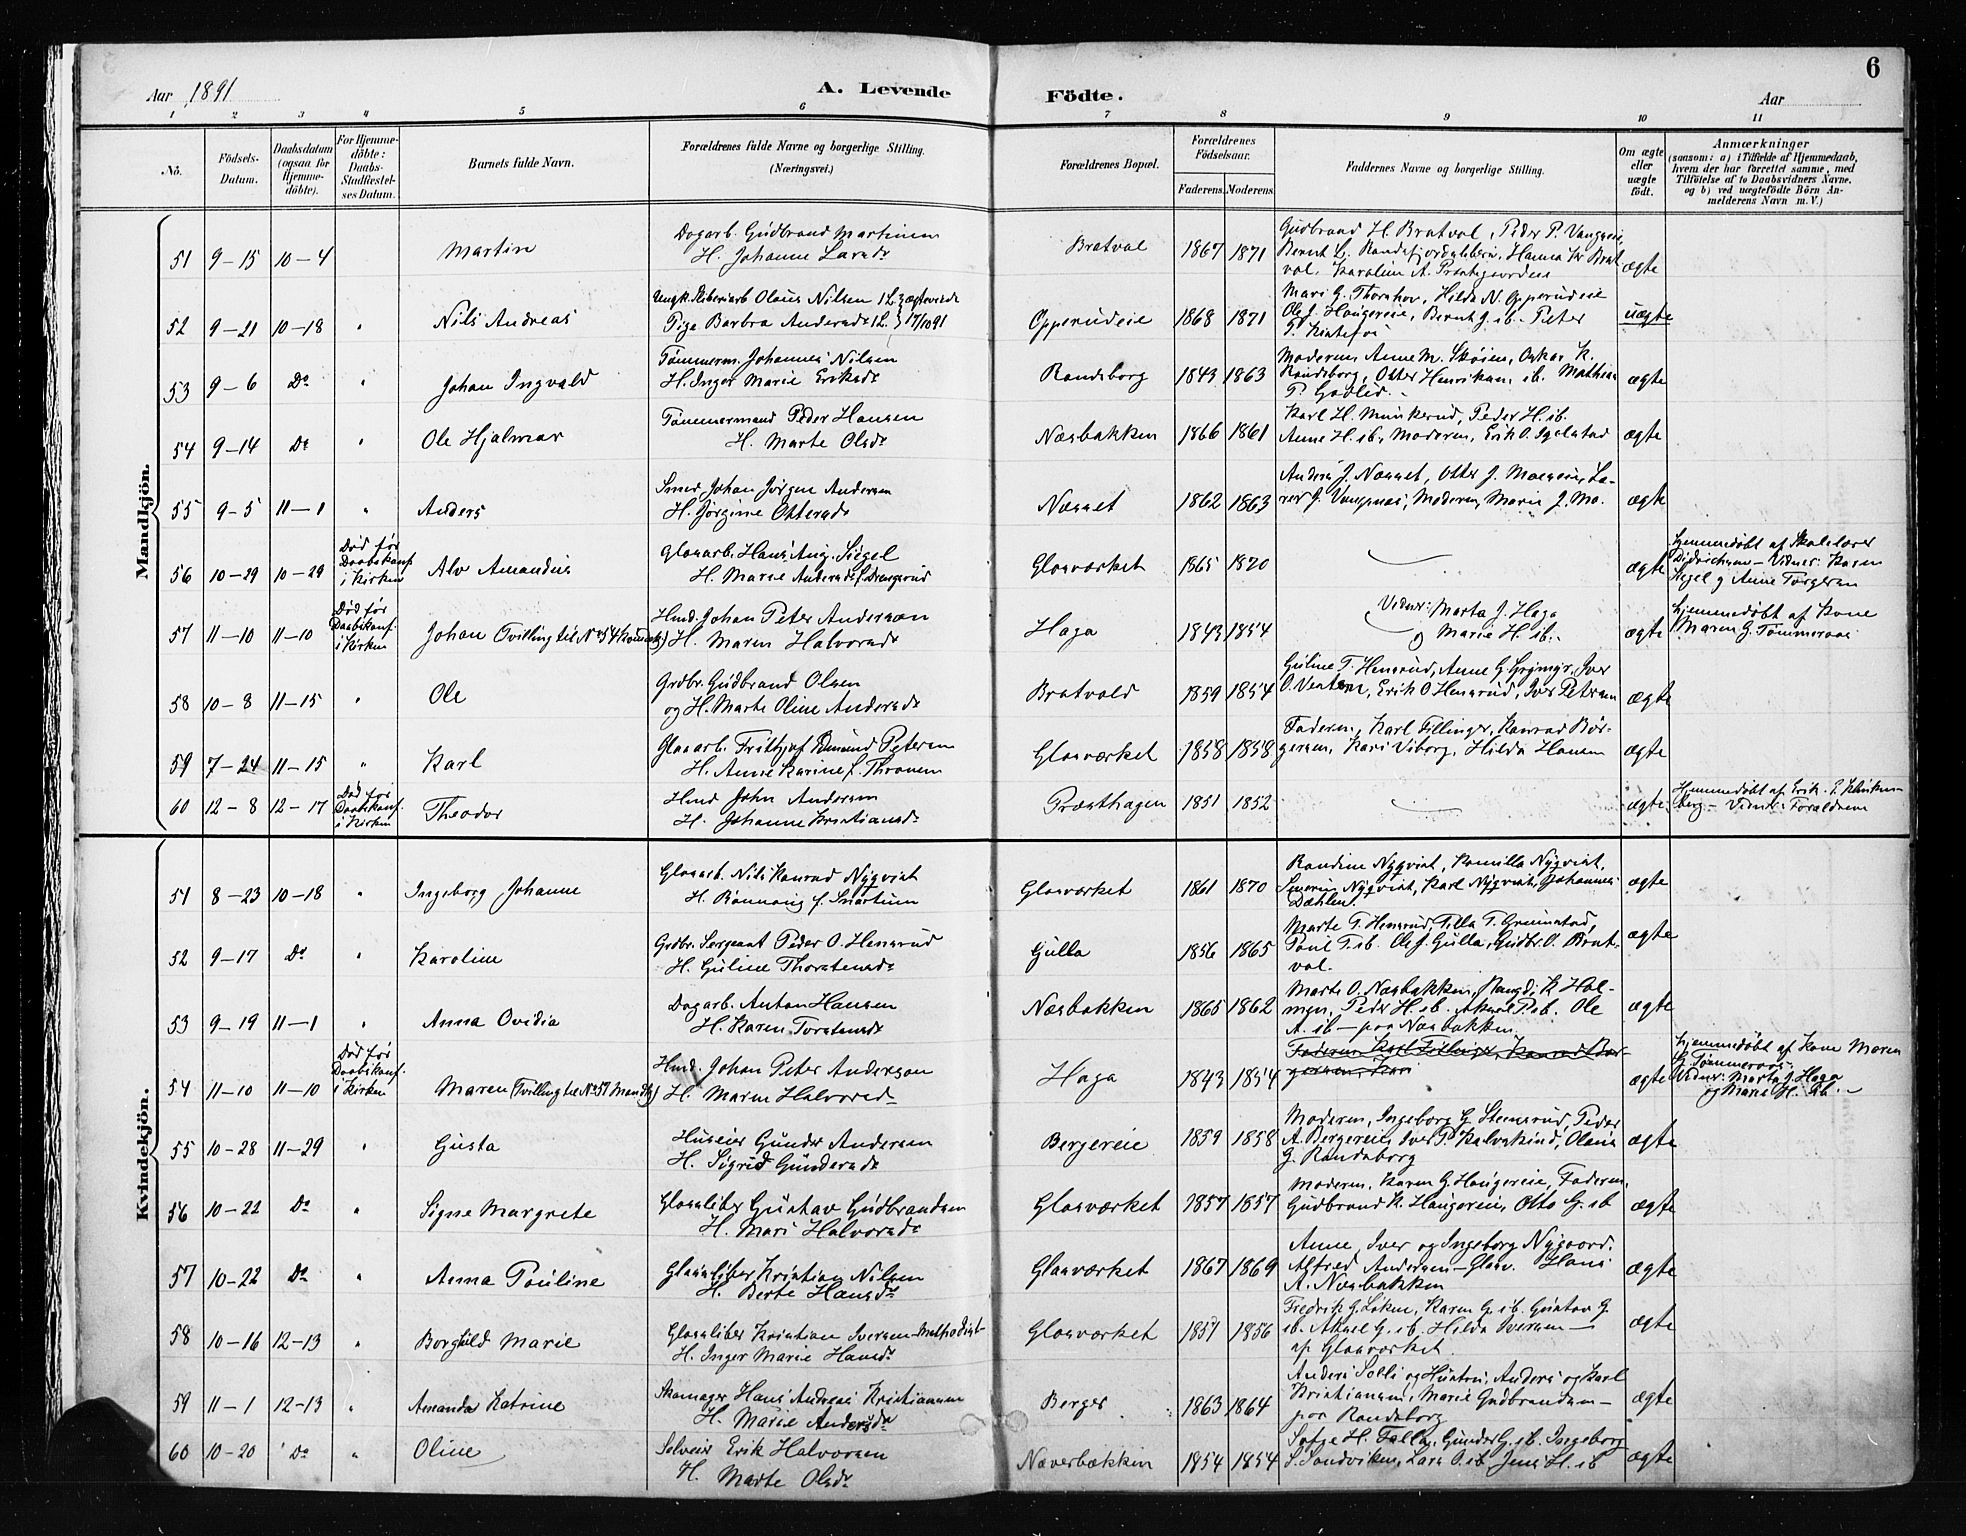 6
Aar 1891
A. Levende
Födte.
Aar
1 2 3 4 5 6 7 8 9 10 11
No.
Födsels-
Datum.
Daabsdatum
(ogsaa for
Hjemme-
döbte).
For Hjemme-
döbte:
Daabs-
Stadfæstel-
ses Datum.
Barnets fulde Navn.
Forældrenes fulde Navne og borgerlige Stilling.
(Næringsvei.)
Forældrenes Bopæl.
Forældrenes
Födselsaar.
Faderens. Moderens.
Faddernes Navne og borgerlige Stilling.
Om ægte
eller
uægte
födt.
Anmærkninger
(saasom: a) i Tilfælde af Hjemmedaab,
hvem der har forrettet samme, med
Tilföielse af to Daabsvidners Navne,
og b) ved uægtefödte Börn An-
melderens Navn m. V.)
Mandkjön.
51 9-15 10-4 Martin
Dagarb. Gudbrand Martinsen
H. Johanne Larsdr
Bratval 1867 1871
Gudbrand H. Bratval, Peder P.
ægte
52 9-21 10-18 " Nils Andreas
Ungk. Sliberiarb Olaus Nilsen 1 L.
Pige Barbra Andersdr 1 L. 17/10 91
Opperudeie 1868 1871
Mari G. Thornhov, Hilda N. Opperudeie
Ole J. Haugereie, Bernt J. ib. Peter
uægte
53 9-6 Do " Johan Ingvald
Tømmerm. Johannes Nilsen
H. Inger Marie Eriksdr
Randsborg 1843 1863
Moderen, Anne M. Skøien, Oskar K.
Randsborg, Otter Henriksen, ib. Mathias
ægte
54 9-14 Do " Ole Hjalmar
Tømmermand Peder Hansen
H. Marte Olsdr
Næsbakken 1866 1861
Karl H. Munkerud, Peder H. ib.
Anne H. ib, Moderen, Erik O. Egelstad
ægte
55 9-5 11-1 " Anders
Smed Johan Jørgen Andersen
H. Jørgine Ottersdr
Næsset 1862 1863
Anders J. Næsset, Otter J. La-
rer J. Moderen, Marie J. Mo.
ægte
56 10-29 10-29
Død før
Daabskonf.
i Kirken
Alv Amandus
Glasarb. Hans Aug. Siegel
H. Marie Andersdr
Glasværket 1865 1870
ægte
Hjemmedøbt af Skolelærer
Didrichsen - Vidner: Karen
Siegel og Anne Torgersen
57 11-10 11-10
Død før
Daabskonf.
i Kirken
Johan Tvilling til No 54 Kvindekj)
Hmd. Johan Peter Andersson
H. Maren Halvorsdr
Haga 1843 1854
Vidner: Marta J. Haga
og Marie H. ib.
ægte
Hjemmedøbt af Kone
Maren G. Tømmeraas
58 10-8 11-15 " Ole
Grdbr. Gudbrand Olsen
og H. Marte Oline Andersdr
Bratvold 1859 1854
Guline T. Hensrud, Anne G. Iver
O. Erik O. Hensrud, Iver Petersen
ægte
59 7-24 11-15 " Karl
Glasarb. Frithjof Edmund Petersen
H. Anne Karine f. Thronsen
Glasværket 1858 1858
Faderen, Karl Fillinger, Konrad Bør-
gersen, Kari Viborg, Hilda Hansen
ægte
60 12-8 12-17
Død før
Daabskonf.
i Kirken
Theodor
Hmd John Andersen
H. Johanne Kristiansdr
Præsthagen 1851 1852
ægte
Hjemmedøbt af Erik
berg - Vidner: Forældrene
Kvindekjön.
51 8-23 10-18 " Ingeborg Johanne
Glasarb. Nils Konrad Nyqvist
H. Rønnaug f. Snartum
Glasværket 1861 1870
Randine Nyqvist, Kamilla Nyqvist,
Nyqvist, Karl Nyqvist, Johannes
Dæhlen.
ægte
52 9-17 Do " Karoline
Grdbr. Sergeant Peder O. Hensrud
H. Guline Thorstensdr
Gulla 1856 1865
Marte T. Hensrud, Tilla T. Grimstad,
Paul T. ib. Ole J. Gulla, Gudbr. O. Brat-
val.
ægte
53 9-19 11-1 " Anna Ovidia
Dagarb. Anton Hansen
H. Karen Torstensdr
Næsbakken 1865 1862
Marte O. Næsbakken, K. Hol-
men, Peder H. ib. Aksel P. ib. Ole
A. ib - paa Næsbakken
ægte
54 11-10 11-10
Død før
Daabskonf.
i Kirken
Maren (Tvilling til No 57 Mandkj)
Hmd. Johan Peter Andersson
H. Maren Halvorsd-
Haga 1843 1854
Faderen Karl Fillinger, Konrad Bør-
gersen, Kari
ægte
Hjemmedøbt af Kone Maren
G. Tømmeraas
Vidner: Marta J. Haga
og Marie H. ib. -
55 10-28 11-29 " Gusta
Huseier Gunder Andersen
H. Sigrid Gundersdr
Bergereie 1859 1858
Moderen, Ingeborg G. Stensrud, Peder
A. Bergereie, Iver P. Kalvskind, Olaus
G. Randsborg
ægte
56 10-22 Do " Signe Margrete
Glassliber Gustav Gudbrandsen
H. Mari Halvorsdr
Glasværket 1857 1857
Moderen, Karen G. Haugereie, Faderen,
Gudbrand K. Haugereie, Otto G. ib
ægte
57 10-22 Do " Anna Pauline
Glassliber Kristian Nilsen
H. Berte Hansdr
Glasværket 1867 1869
Anne, Iver og Ingeborg Nygaard.
Alfred Andersen - Glasv. Hans
A. Næsbakken
ægte
58 10-16 12-13 " Borghild Marie
Glassliber Kristian Iversen - Methodist
H. Inger Marie Hansdr
Glasværket 1857 1856
Fredrik G. Løken, Karen G. ib. Gustav G.
ib. Aksel G. ib. Hilda Iversen -
af Glasværket.
ægte
59 11-1 12-13 " Amanda Katrine
Skomager Hans Andreas Kristiansen
H. Marie Andersdr
Berger 1863 1864
Anders Solli og Hustru, Anders og Karl
Kristiansen, Marie Gudbrandsen -
paa Randsborg
ægte
60 10-20 Do " Oline
Selveier Erik Halvorsen
H. Marte Olsdr
Næverbækken 1854 1854
Sofie H. Falla, Gunder G. ib. Ingeborg
S. Sandviken, Lars O. ib. Jens H. ib
ægte